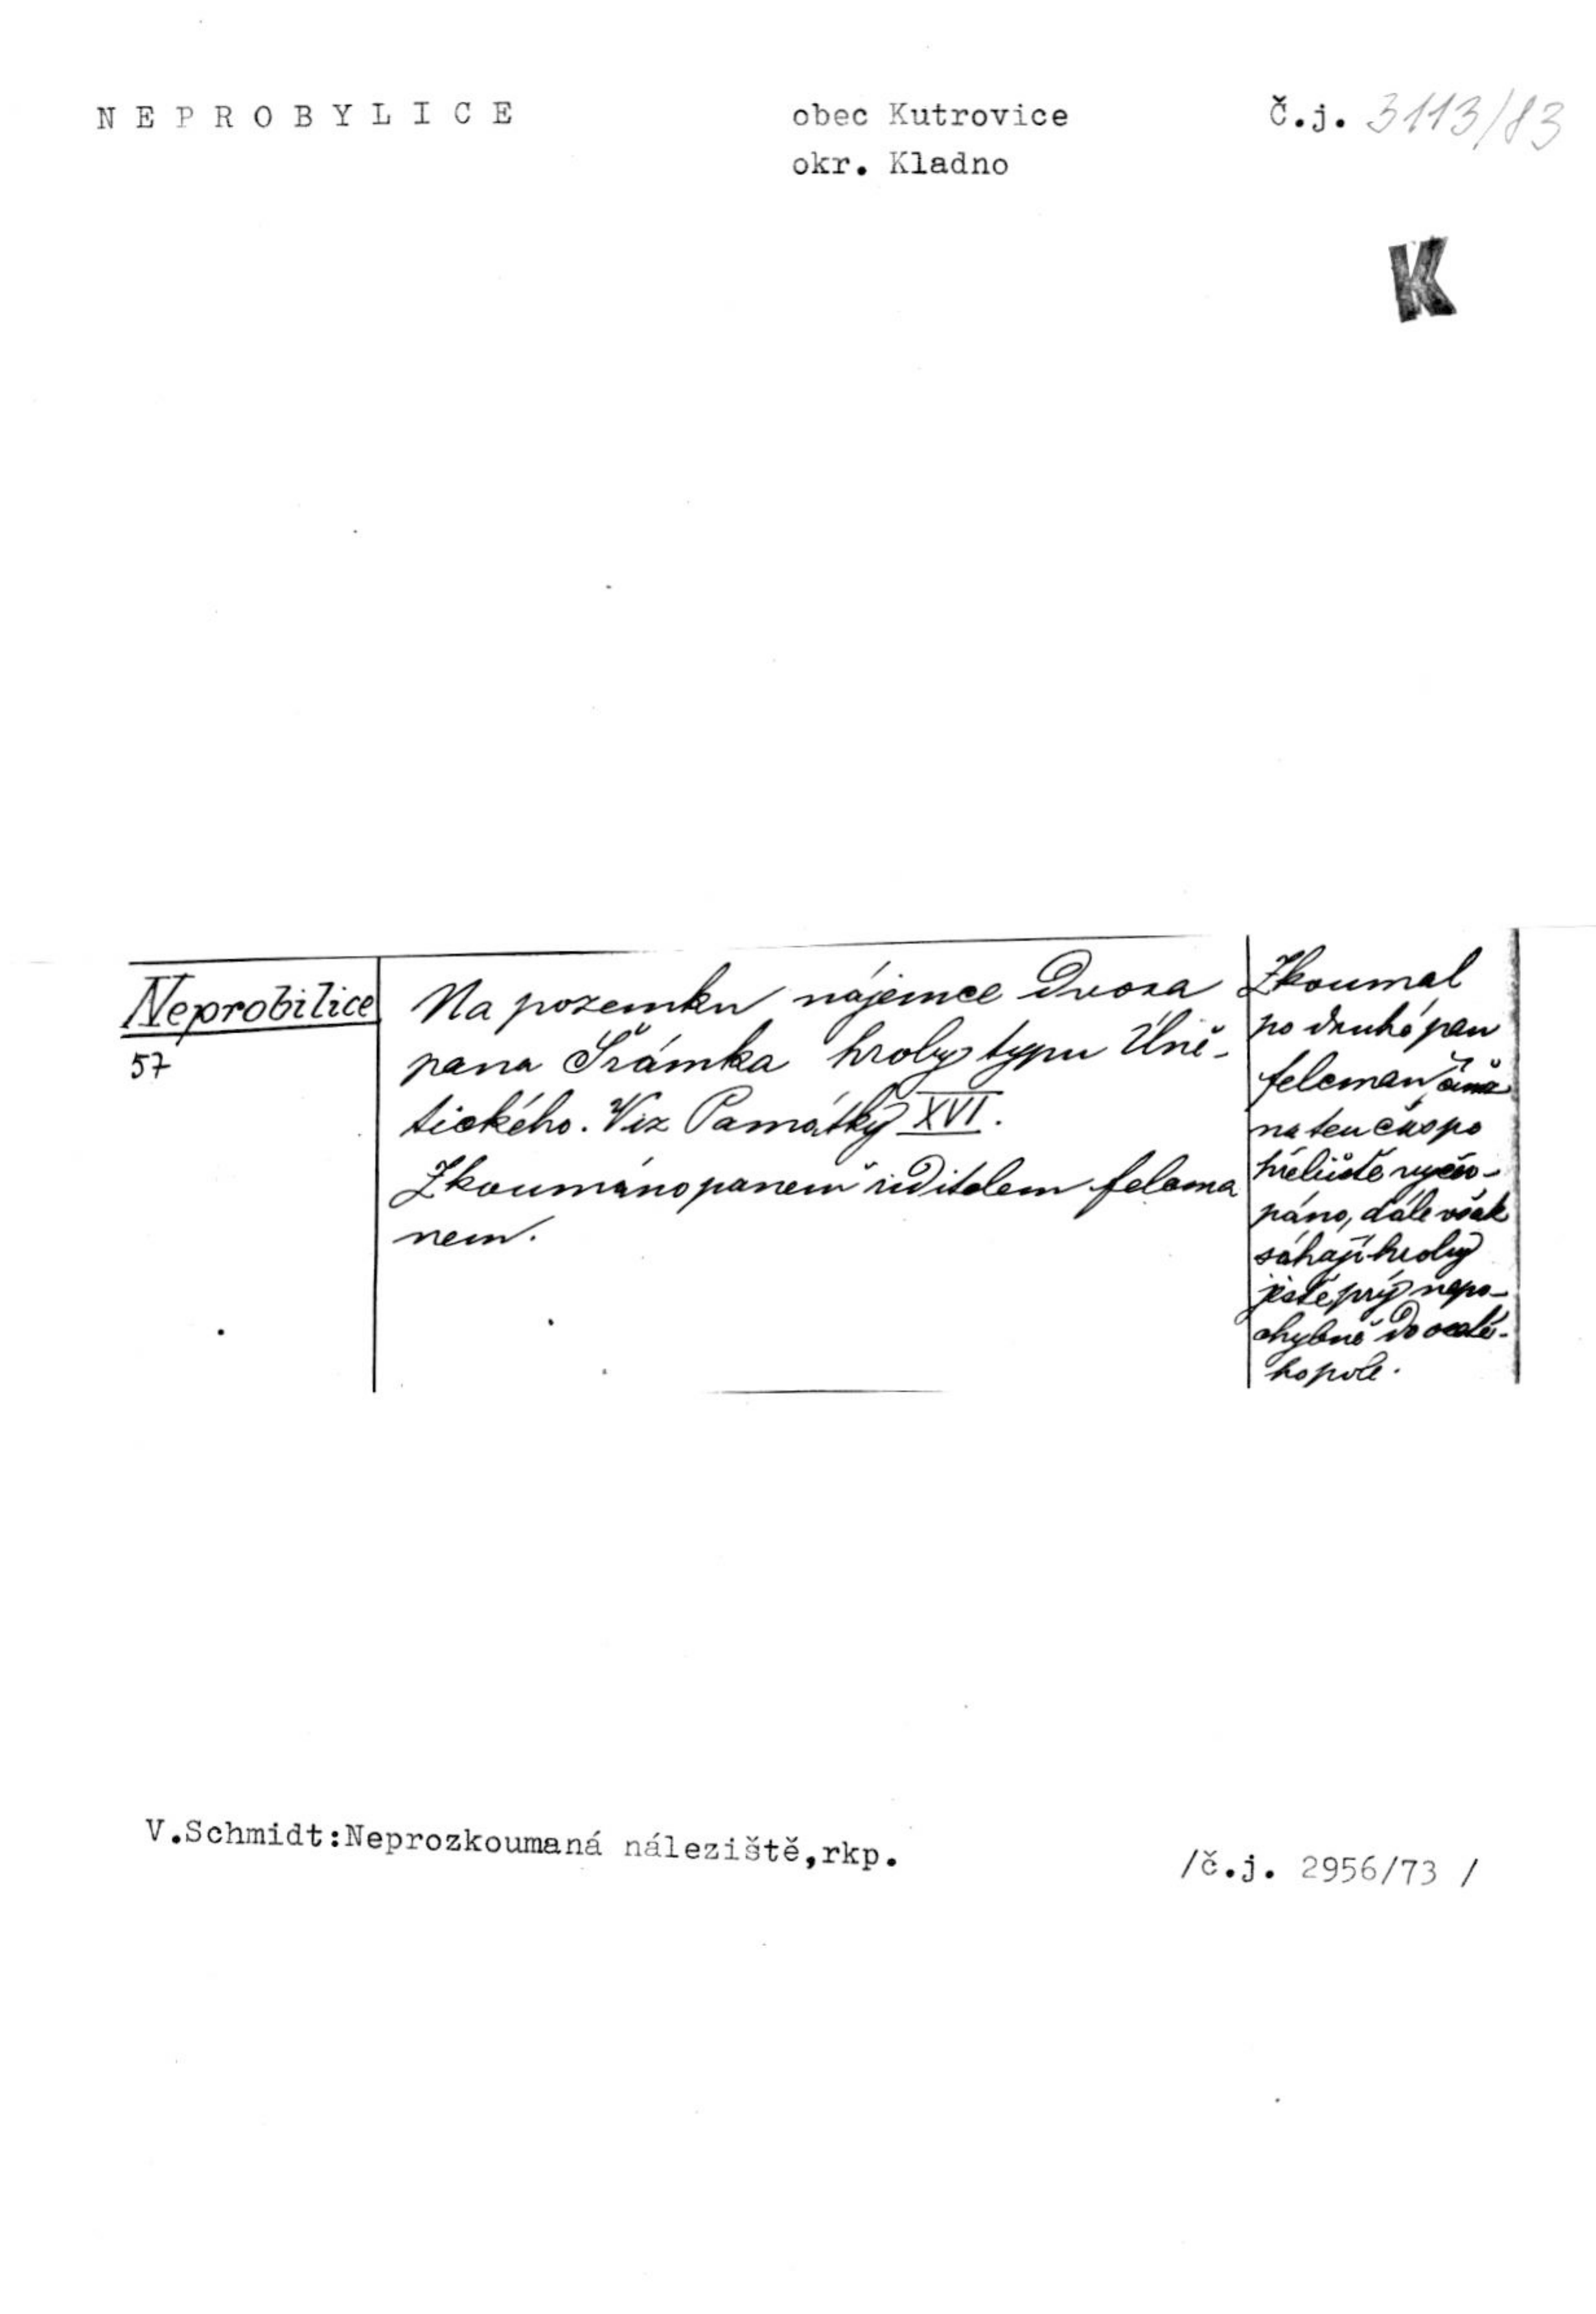 NEPROBYLICE
obec Kutrovice
okr. Kladno
Č.j. 3113/83
K
Neprobilice
57
Na pozemku nájemce dvora
pana Šrámka hroby typu Úně-
tického. Viz Památky XVI.
Zkoumáno panem řiditelem felcma
nem.
Zkoumal
po druhé pan
felcman, čímž
na ten čas po
hřebiště vyčer-
páno, dále však
sáhají hroby
ještě prý nepo-
chybně do celé-
ho pole.
V.Schmidt:Neprozkoumaná náleziště,rkp.
/č.j. 2956/73 /